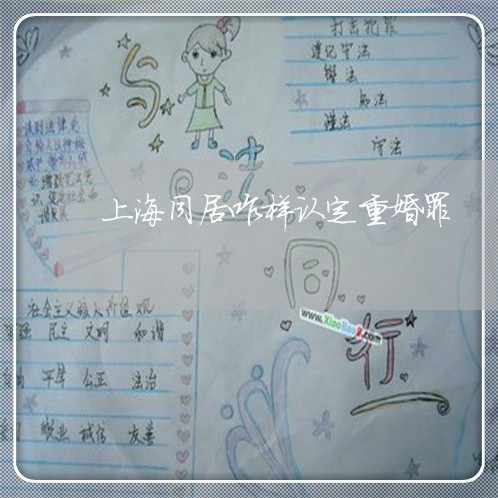 打击犯罪
遵纪守法
学法
知法
懂法
守法
与
法
同
行
上海同居咋样认定重婚罪
社会主义核心价值观
富强 民主 文明 和谐
自由 平等 公正 法治
敬业 诚信 友善
www.XiaoBao8.com